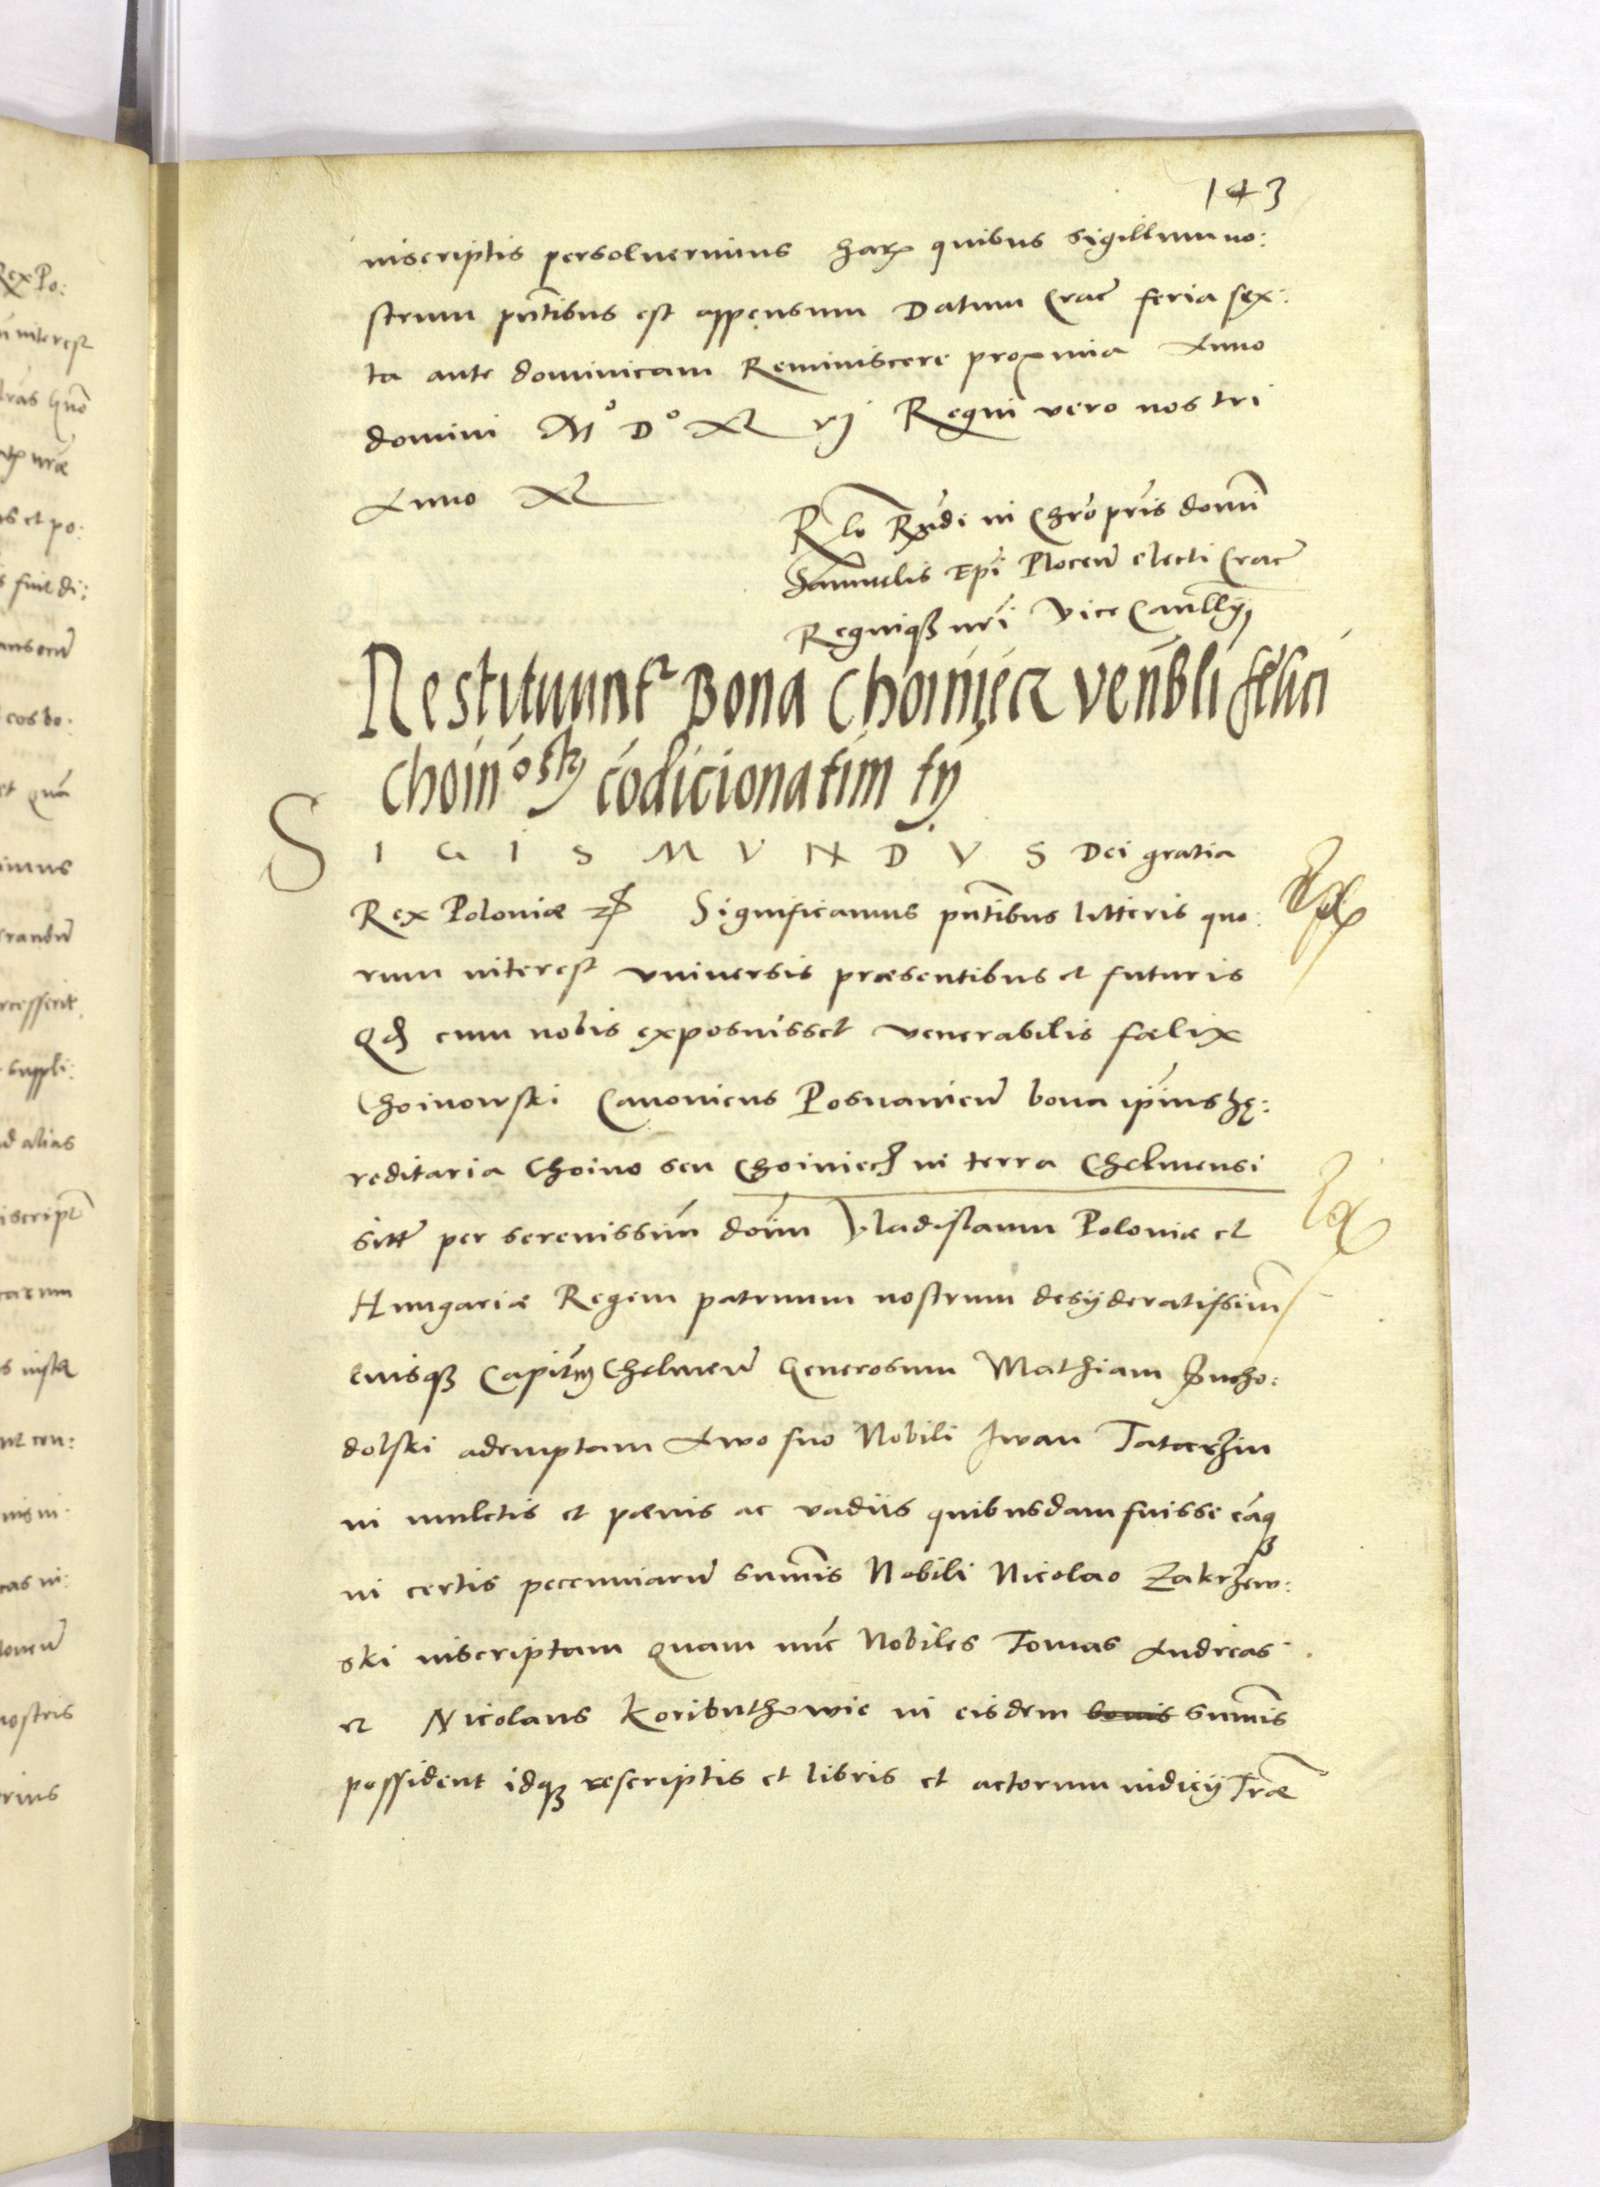 143
inscriptis persoluerimus harꝫ quibus sigillum no:
strum pn̄tibus est appensum Datum Crac̄ feria sex:
ta ante dominicam Reminiscere proxima Anno
domini M° D° XL vj Regni vero nostri
Anno XL
Rlō Rn̄di in Chrō pr̄is domī
Samuelis Ep̄i Plocen̄ electi Crac̄
Regniqꝫ nr̄i Vice Can̄llij
Restituunt᷑ Bona Choiniecz ven̄bli felici
Choinoskj cōdicionatim
SIGISMVNDVS Dei gratia
Rex Poloniæ Significamus pn̄tibus litteris quo:
rum interest vniuersis præsentibus et futuris
Qd̄ cum nobis exposuisset venerabilis fœlix
Choinowski Canonicus Posnanien̄ bona ip̄ius hę:
reditaria Choino seu Choiniecz in terra Chelmensi
sitt̄ per serenissim̄ dom̄ Vladislaum Poloniæ et
Hungariæ Regem patruum nostrum desyderatissim̄
eiusqꝫ Capitm̄ Chelmen̄ Generosum Mathiam Sucho:
dolski ademptam Awo suo Nobili Iwan Tatarzin
in mulctis et pœnis ac vadiis quibusdam fuisse eāqꝫ
in certis pecuniarū summ̄is Nobili Nicolao Zakrzew:
ski inscriptam quam nūc Nobiles Tomas Andreas
et Nicolaus Koributhowie in eisdem bonis summ̄is
possident idqꝫ rescriptis et libris et actorum iudicij Tr̄æ
Rex Po:
interest
et po:
fuit di:
cos bo:
et quā
suppli:
d alias
nostris